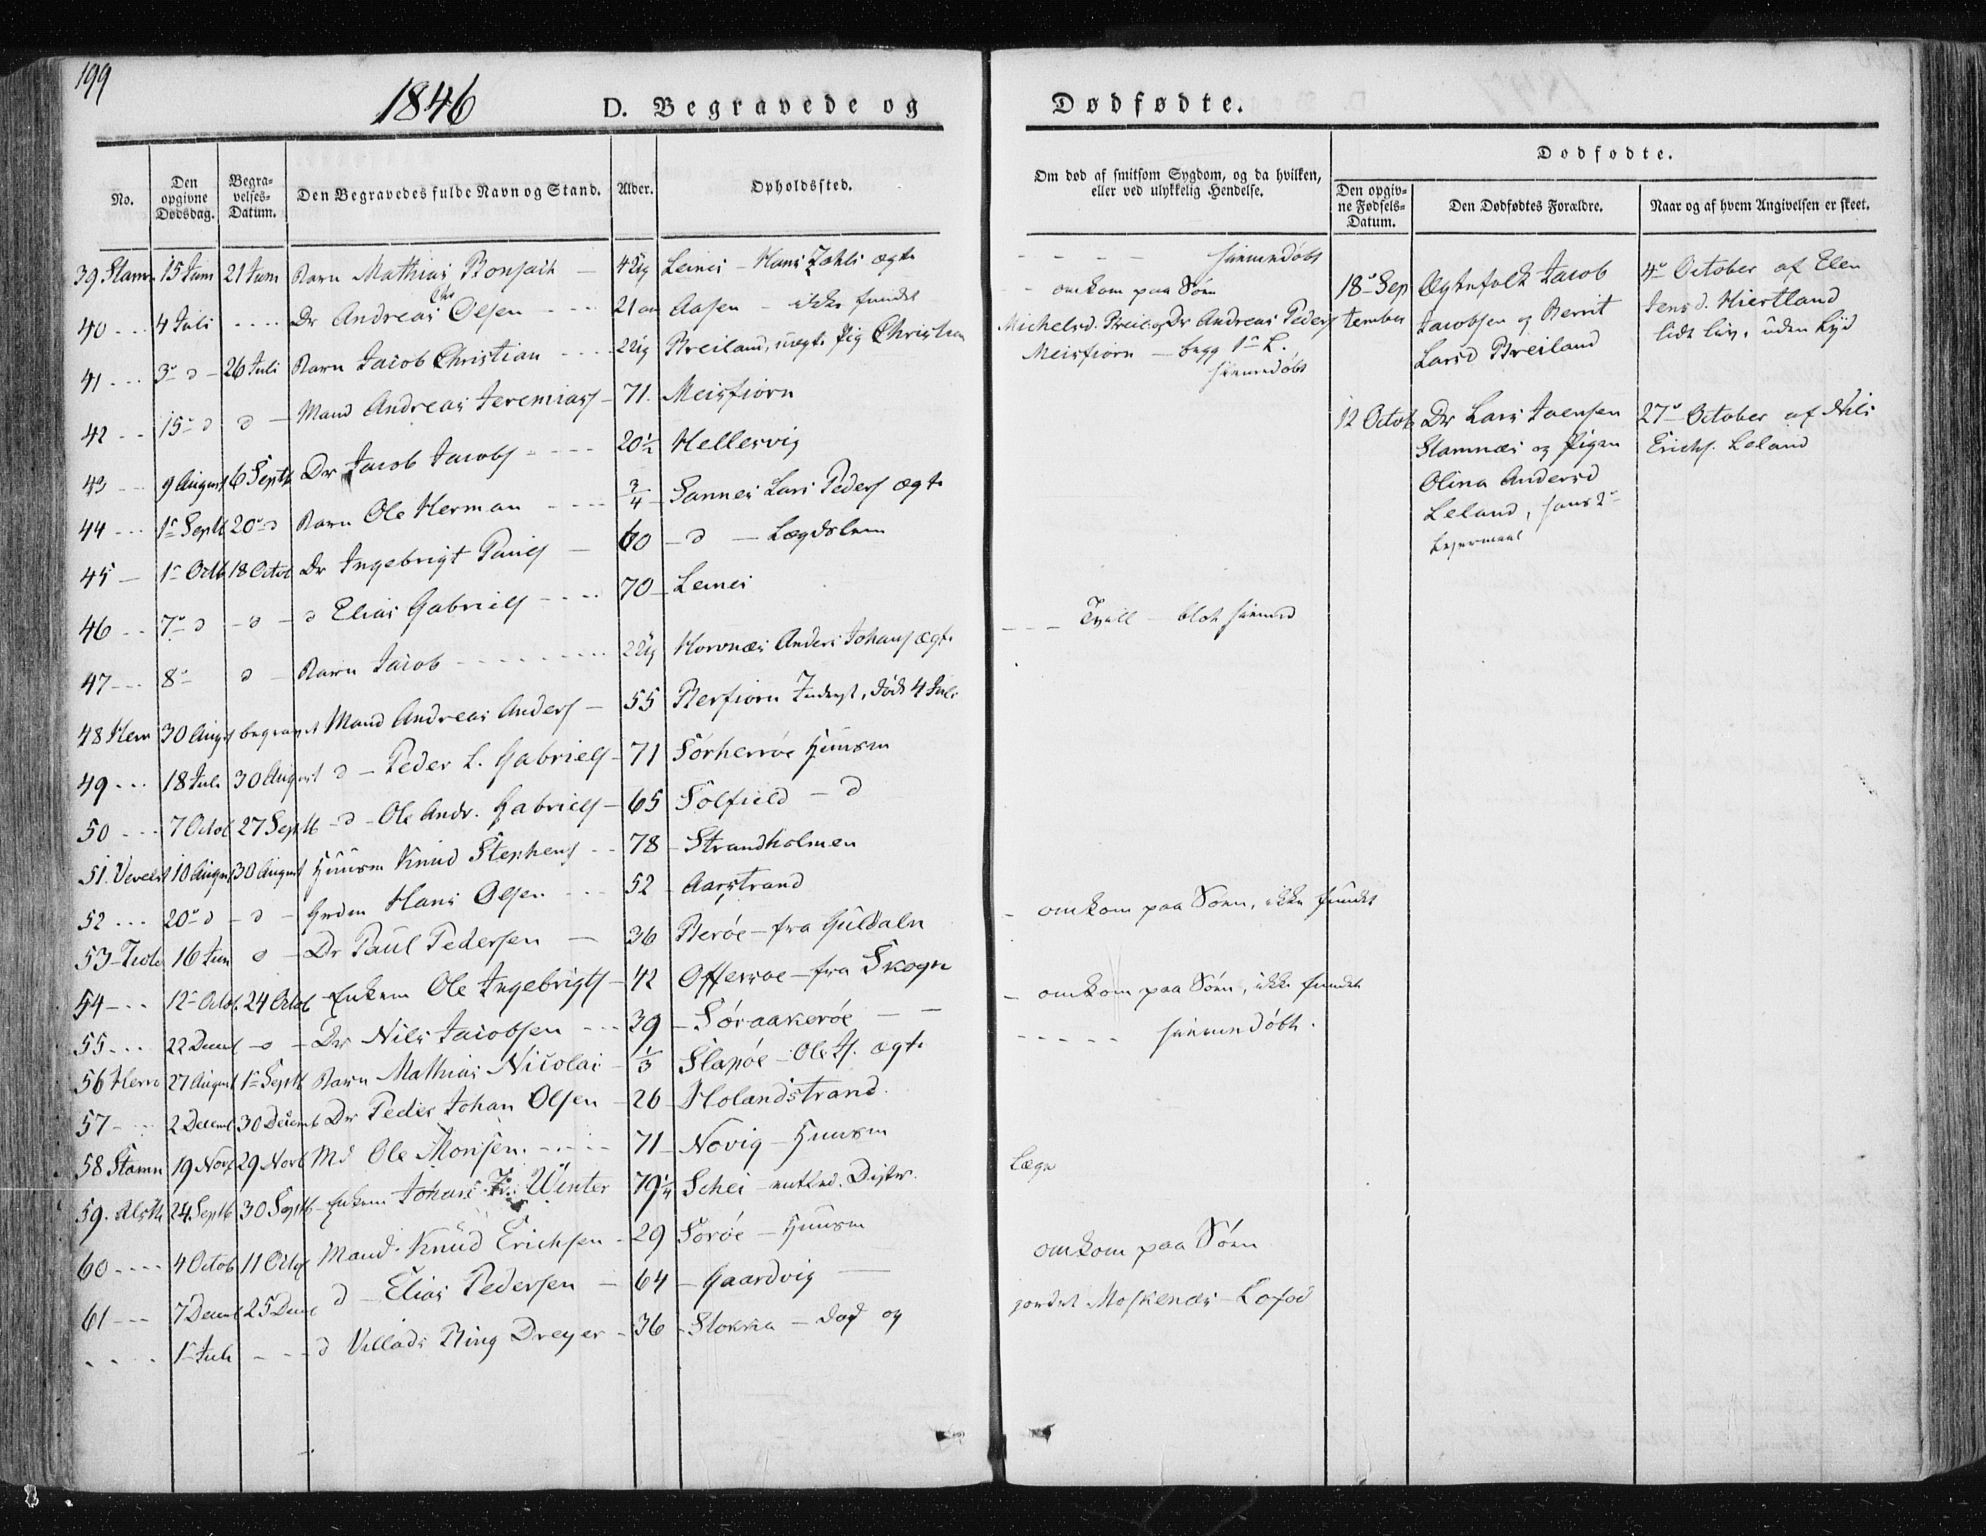 199
1846
D. Begravede og Dødfødte.
No.
Den opgivne Dødsdag.
Begravelses-Datum.
Den Begravedes fulde Navn og Stand.
Alder.
Opholdssted.
Om død af smitsom Sygdom, og da hvilken, eller ved ulykkelig Hendelse.
Dødfødte.
Den opgivne Fødsels-Datum.
Den Dødfødtes Forældre.
Naar og af hvem Angivelsen er skeet.
39 Stamn 15 Juni 21 Juni Barn Mathias Bonsach — 4 Ug Leines – Hans Zahls ægte - - - - hiemmedøbt
40 - - - 4 Juli - - - - Dr Andreas Chr Olsen - - - 21 Aasen – ikke fundet - omkom paa Søen
41 - - - 3 d – 26 Juli Barn Jacob Christian - - - 2 Ug Breiland, uægte Pig Christina Michelsd. Breil og Dr Andreas Peders
Meisfiorn – begg 1 L. hiemmedøbt
42 - - 15 d d – Mand Andreas Jeremias – 71. Meisfiorn
43 - - 9 August 6 Septb Dr Jacob Jacobs - - - 20½ Hellesvig
44 - - - 1 Septb 20 d Barn Ole Herman - - - ¾ Sannes Lars Peders ægte
45 — 1 Octb 18 Octob Dr Ingebrigt Pauls — 60 – d – Lægdslem
46 - - - 7 d – d – d Elias Gabriels - - - 70 – Leines
47 - - - 8 d – Barn Jacob - - - - 2 Ug Hornæs Anders Johans ægte - - - Tvill – blot hiemmed
48 Herrø 30 Augst begravet Mand Andreas Anders – 55 Berfiorn Inderst, døde 4 Juli
49 - - - 18 Juli 30 August d – Peder L. Gabriels – 71 Sørherrøe Huusm
50 - - - 7 Octob 27 Septb – d – Ole Andr. Gabriels – 65 Solfield – d
51. 10 August 30 August Huusm Knud Stephens - - 78 – Strandholmen
52 - - - 20 d – d – Hans Olsen - - - 52 – Aarstrand - omkom paa Søen, ikke fundet
53 – 16 Jun d – Dr Paul Pedersen — 36 Berøe – fra Guldaln
54 – - - 12 Octob. 24 Octob Enkem Ole Ingebrigts – 42 Offersøe – fra Skogn – omkom paa Søen, ikke fundet
55 - - - 22 Decemb – d – Dr Nils Jacobsen - - - 39 – Søraakerøe – – - - - - - hiemmedøbt.
56 Herrø 27 August 1 Septb Barn Mathias Nicolai – ⅓ Slapøe – Ole H. ægte
57 – 2 Decemb 30 Decemb Dr Peder Johan Olsen – 26 – Holandstrand.
58 Stamn 19 Novb 29 Novb Md Ole Monsen. - - - - 71 – Novig – Huusm
59. Alsth 24 Septb 30 Septb – Enkem Johan Fr. Winter 79¼ Schei – entled. Distr. Læge
60 - - - - 4 Octob 11 Octob Mand. Knud Erichsen – 29 Sorøe – Huusm omkom paa Søen
61 - - - 7 Decemb 25 Decemb d – Elias Pedersen — 64 – Gaardvig —
- - - - 1 Juli - - - d Villads Bing Dreyer – 36 – Stokka – død og jordet Moskenæs – Lofod
18 September
Ægtefolk Jacob
Jacobsen og Berrit
Larsd Breiland
4 October af Elen
Jensd. Hiertland
lidt liv, uden Lyd
12 Octob
Dr Lars Joensen
Stamnæs og Pigen
Olina Andersd
Leland, hans 2
Leiermaal
27 October af Nils
Erichs. Leland